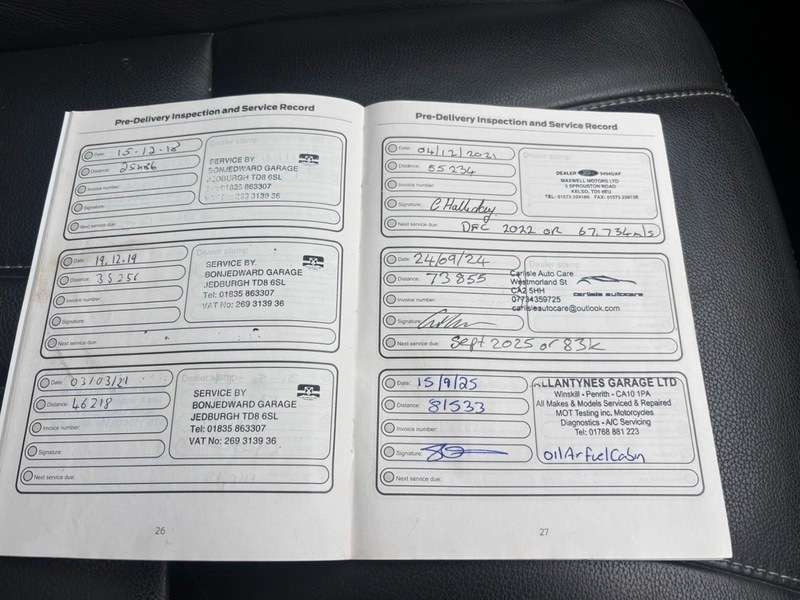 Pre-Delivery Inspection and Service Record
Date: 15-12-18
Distance: 25486
Invoice number:
Signature:
Next service due:
SERVICE BY
BONJEDWARD GARAGE
JEDBURGH TD8 6SL
Tel: 01835 863307
VAT No: 269 3139 36
Date: 19.12.19
Distance: 35256
Invoice number:
Signature:
Next service due:
SERVICE BY
BONJEDWARD GARAGE
JEDBURGH TD8 6SL
Tel: 01835 863307
VAT No: 269 3139 36
Date: 03/03/21
Distance: 46218
Invoice number:
Signature:
Next service due:
Dealer stamp
SERVICE BY
BONJEDWARD GARAGE
JEDBURGH TD8 6SL
Tel: 01835 863307
VAT No: 269 3139 36
26
Pre-Delivery Inspection and Service Record
Date: 04/12/2021
Distance: 55234
Invoice number:
Signature: C Halliday
Next service due: DEC 2022 OR 67,734 mls
Dealer stamp
DEALER Ford
MAXWELL MOTORS LTD
SPROUSTON ROAD
KELSO, TD5
Date: 24/09/24
Distance: 73855
Invoice number:
Signature:
Next service due: Sept 2025 or 83k
Carlisle Auto Care
Westmorland St
CA2 5HH
07734359725
carlisleautocare@outlook.com
carlisle autocare
Date: 15/9/25
Distance: 81533
Invoice number:
Signature:
Next service due:
ALLANTYNES GARAGE LTD
Winskill - Penrith - CA10 1PA
All Makes & Models Serviced & Repaired
MOT Testing inc, Motorcycles
Diagnostics - A/C Servicing
Tel: 01768 881 223
oil Air Fuel Cabin
27